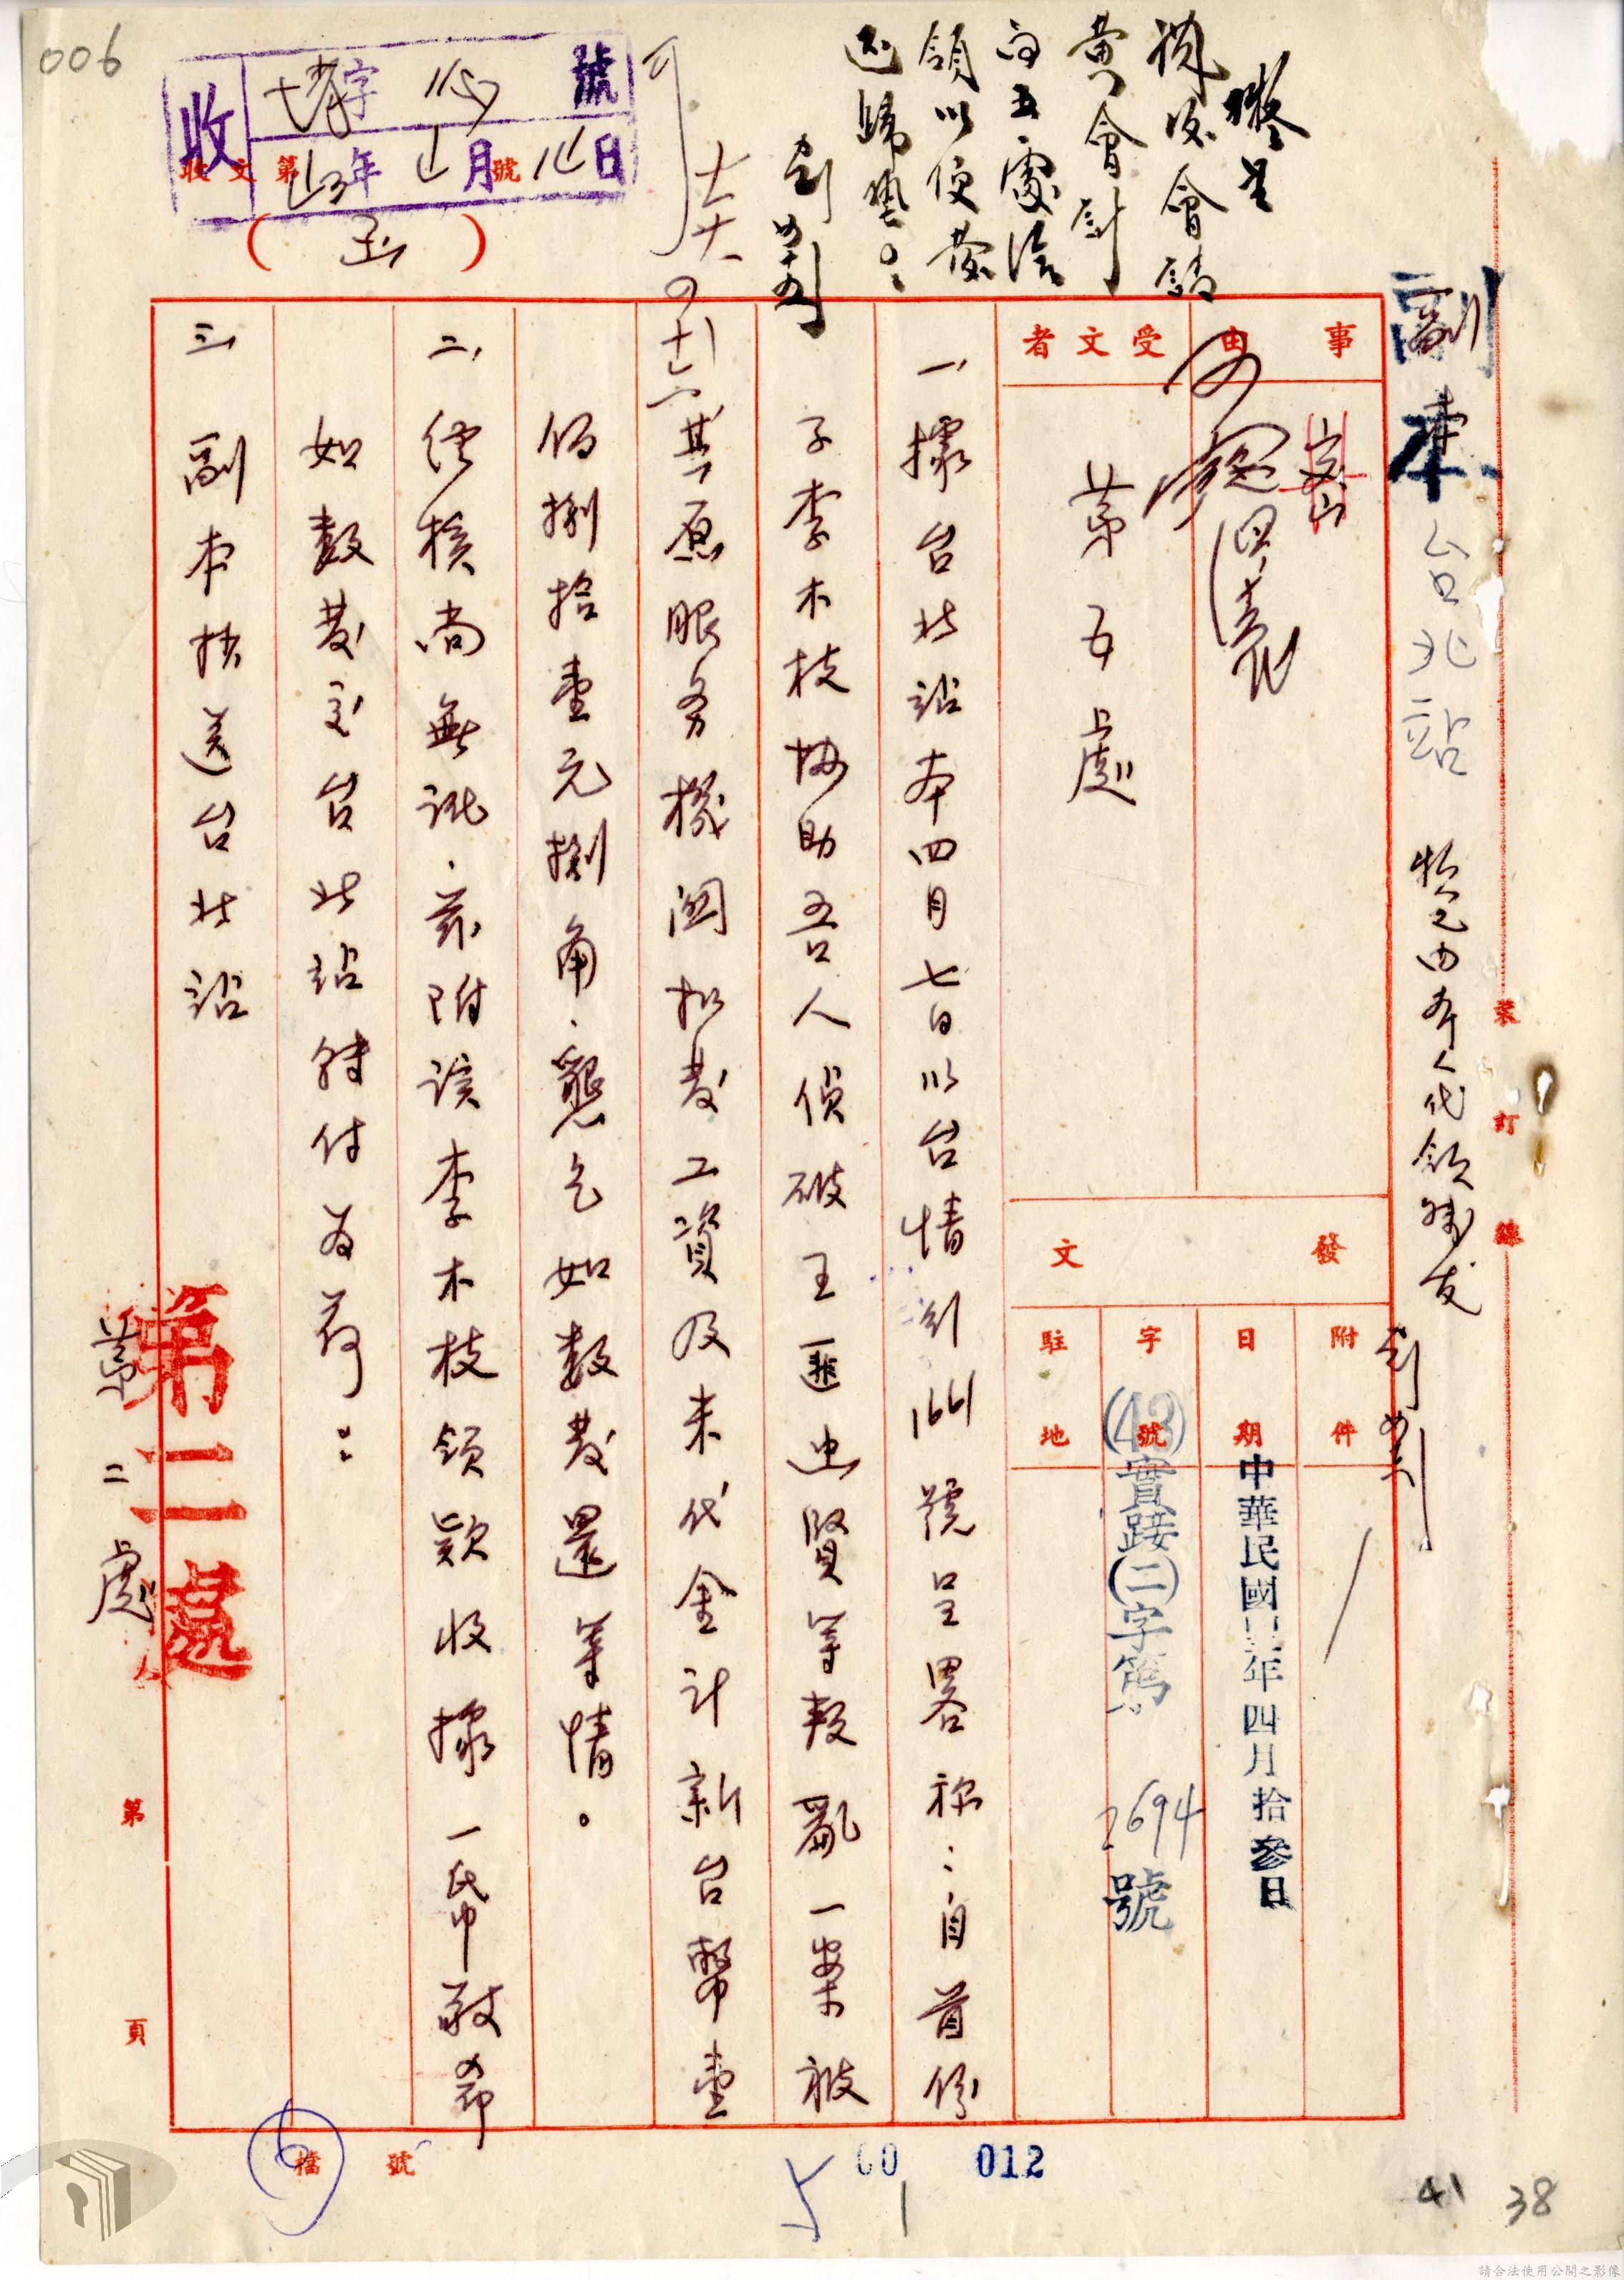 006
收
字 號
年 月 日
收文第 號
(函)
擬呈
黃會計
領以便發
副本
台北站
奬金由本人代領轉發
裝訂線
事由
受文者
第五處
發文
附件
日期
中華民國四三年四月拾參日
字號
(43)實踐(二)字第2694號
駐地
一、據台北站本四月七日以台情引1661號呈畧称:自首份
子李木枝協助吾人偵破王匪忠賢等叛亂一案被
其原服务機関扣發工資及未代金計新台幣壹
佰捌拾壹元捌角,懇乞如數發還等情。
二、經核尚無訛,茲附該李木枝領款收據一帋敬希
如數發交台北站轉付為荷:
三、副本抄送台北站
第二處
第二處
第 頁
檔號
00 012
41
38
請合法使用公開之影像